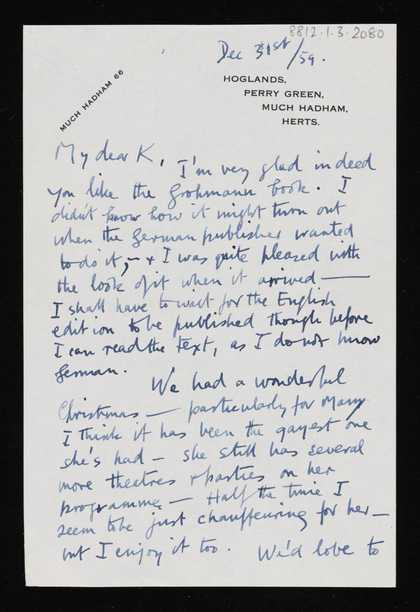 8812.1.3.2080
Dec 31st/59.
MUCH HADHAM 66
HOGLANDS,
PERRY GREEN,
MUCH HADHAM,
HERTS.
My dear K,
I'm very glad indeed
you like the Grohmann book. I
didn't know how it might turn out
when the German publisher wanted
to do it, – + I was quite pleased with
the look of it when it arrived —
I shall have to wait for the English
edition to be published though before
I can read the text, as I do not know
German.
We had a wonderful
Christmas — particularly for Mary
I think it has been the gayest one
she's had — she still has several
more theatres + parties on her
programme — Half the time I
seem to be just chauffeuring for her —
but I enjoy it too. We'd love to